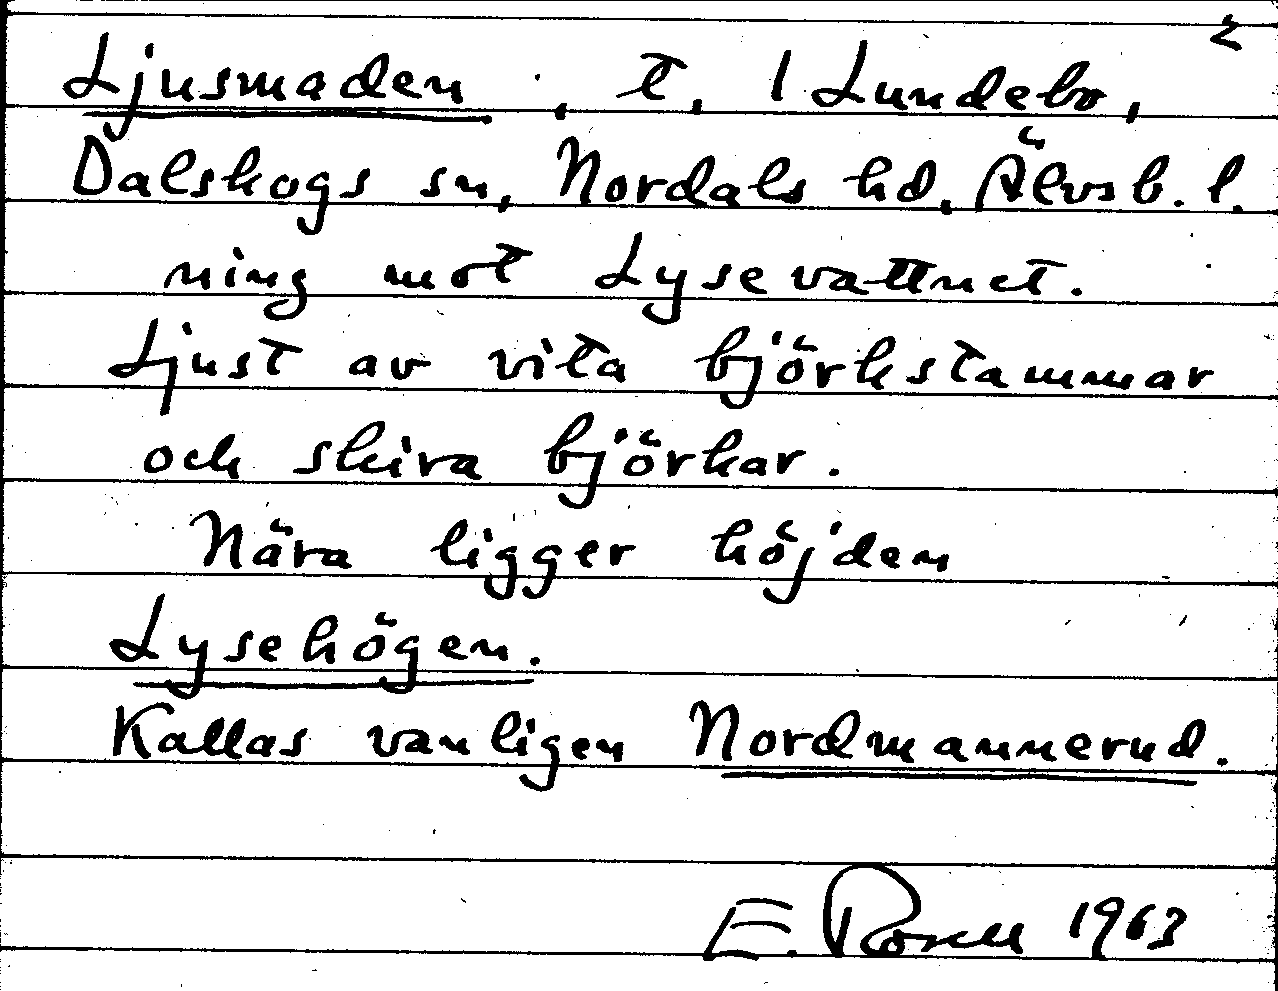 2
Ljusmaden, t. 1 Lundebo,
Dalskogs sn, Nordals hd. Älvsb. l.
ning mot Lysevattnet.
Ljust av vita björkstammar
och skira björkar.
Nära ligger höjden
Lysehögen.
Kallas vanligen Nordmannerud.
E. Rosell 1963